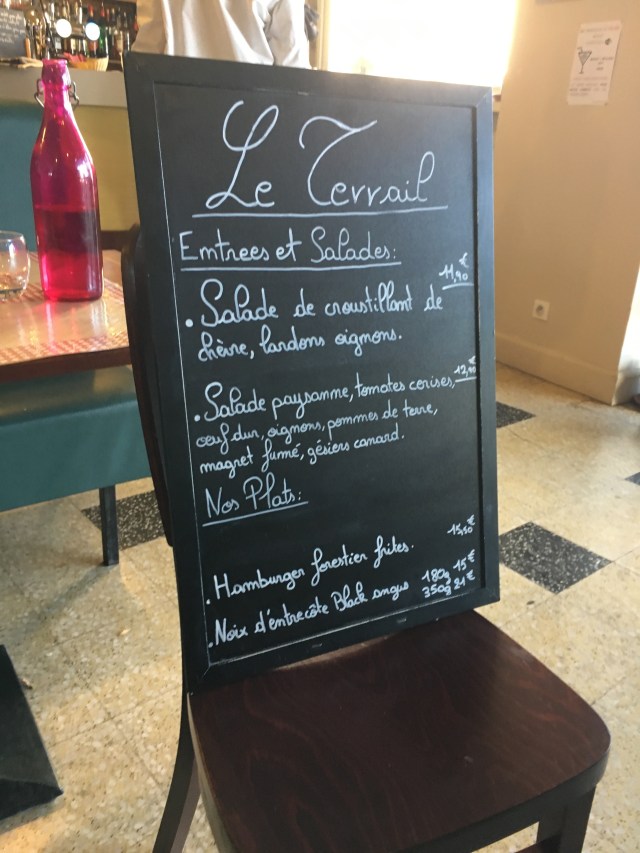 Le Terrail
Emtrees et Salades:
11,90 €
• Salade de croustillant de
chèvre, lardons oignons.
• Salade paysanne, tomates cerises, 12,90 €
oeuf dur, oignons, pommes de terre,
magret fumé, gésiers canard.
Nos Plats:
15,50 €
• Hamburger forestier frites.
• Noix d'entrecôte Black angus 180g 15 €
350g 21 €